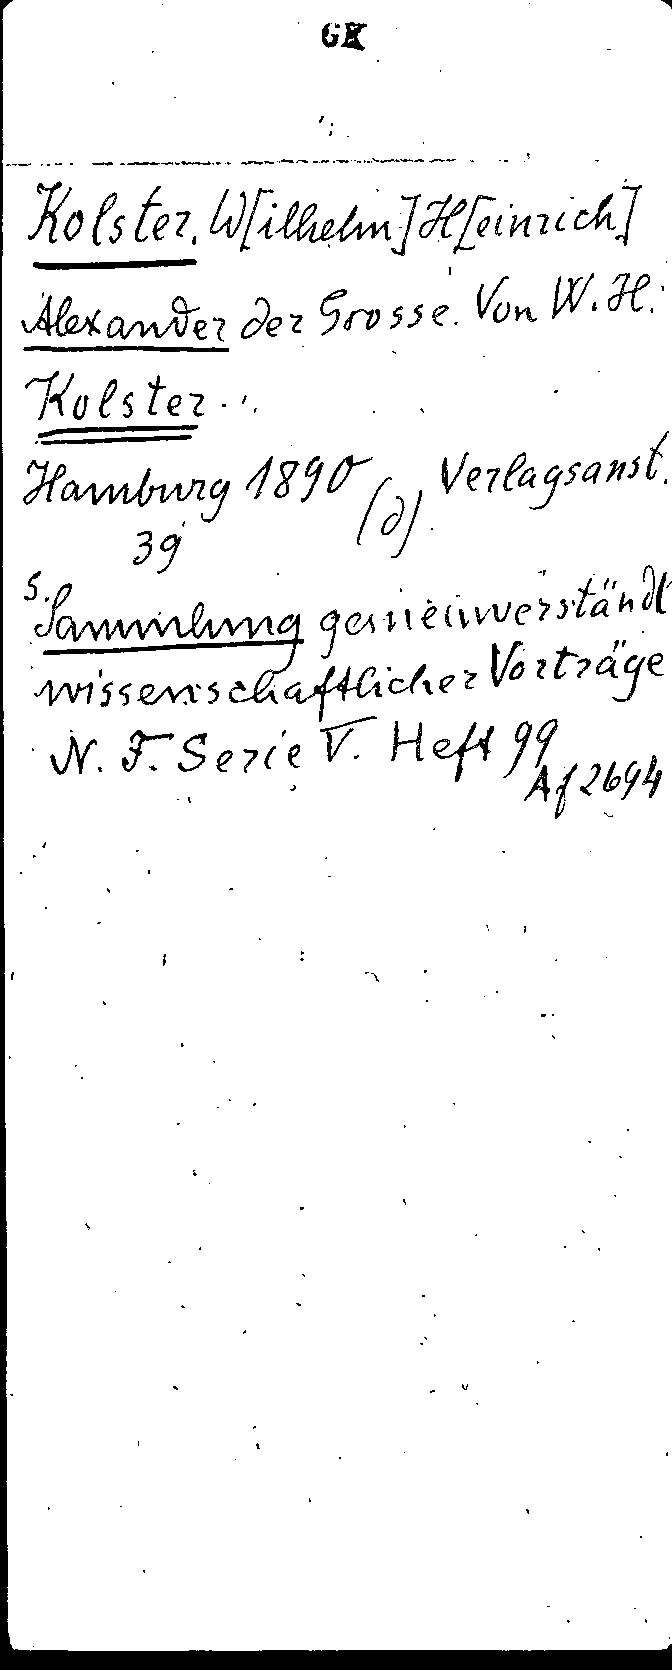 GK
Kolster, W[ilhelm] H[einrich]
Alexander der Grosse. Von W. H.
Kolster...
Hamburg 1890 (d) Verlagsanst.
39
S. Sammlung gemeinverständl
wissenschaftlicher Vorträge
N. F. Serie V. Heft 99
Af 2694